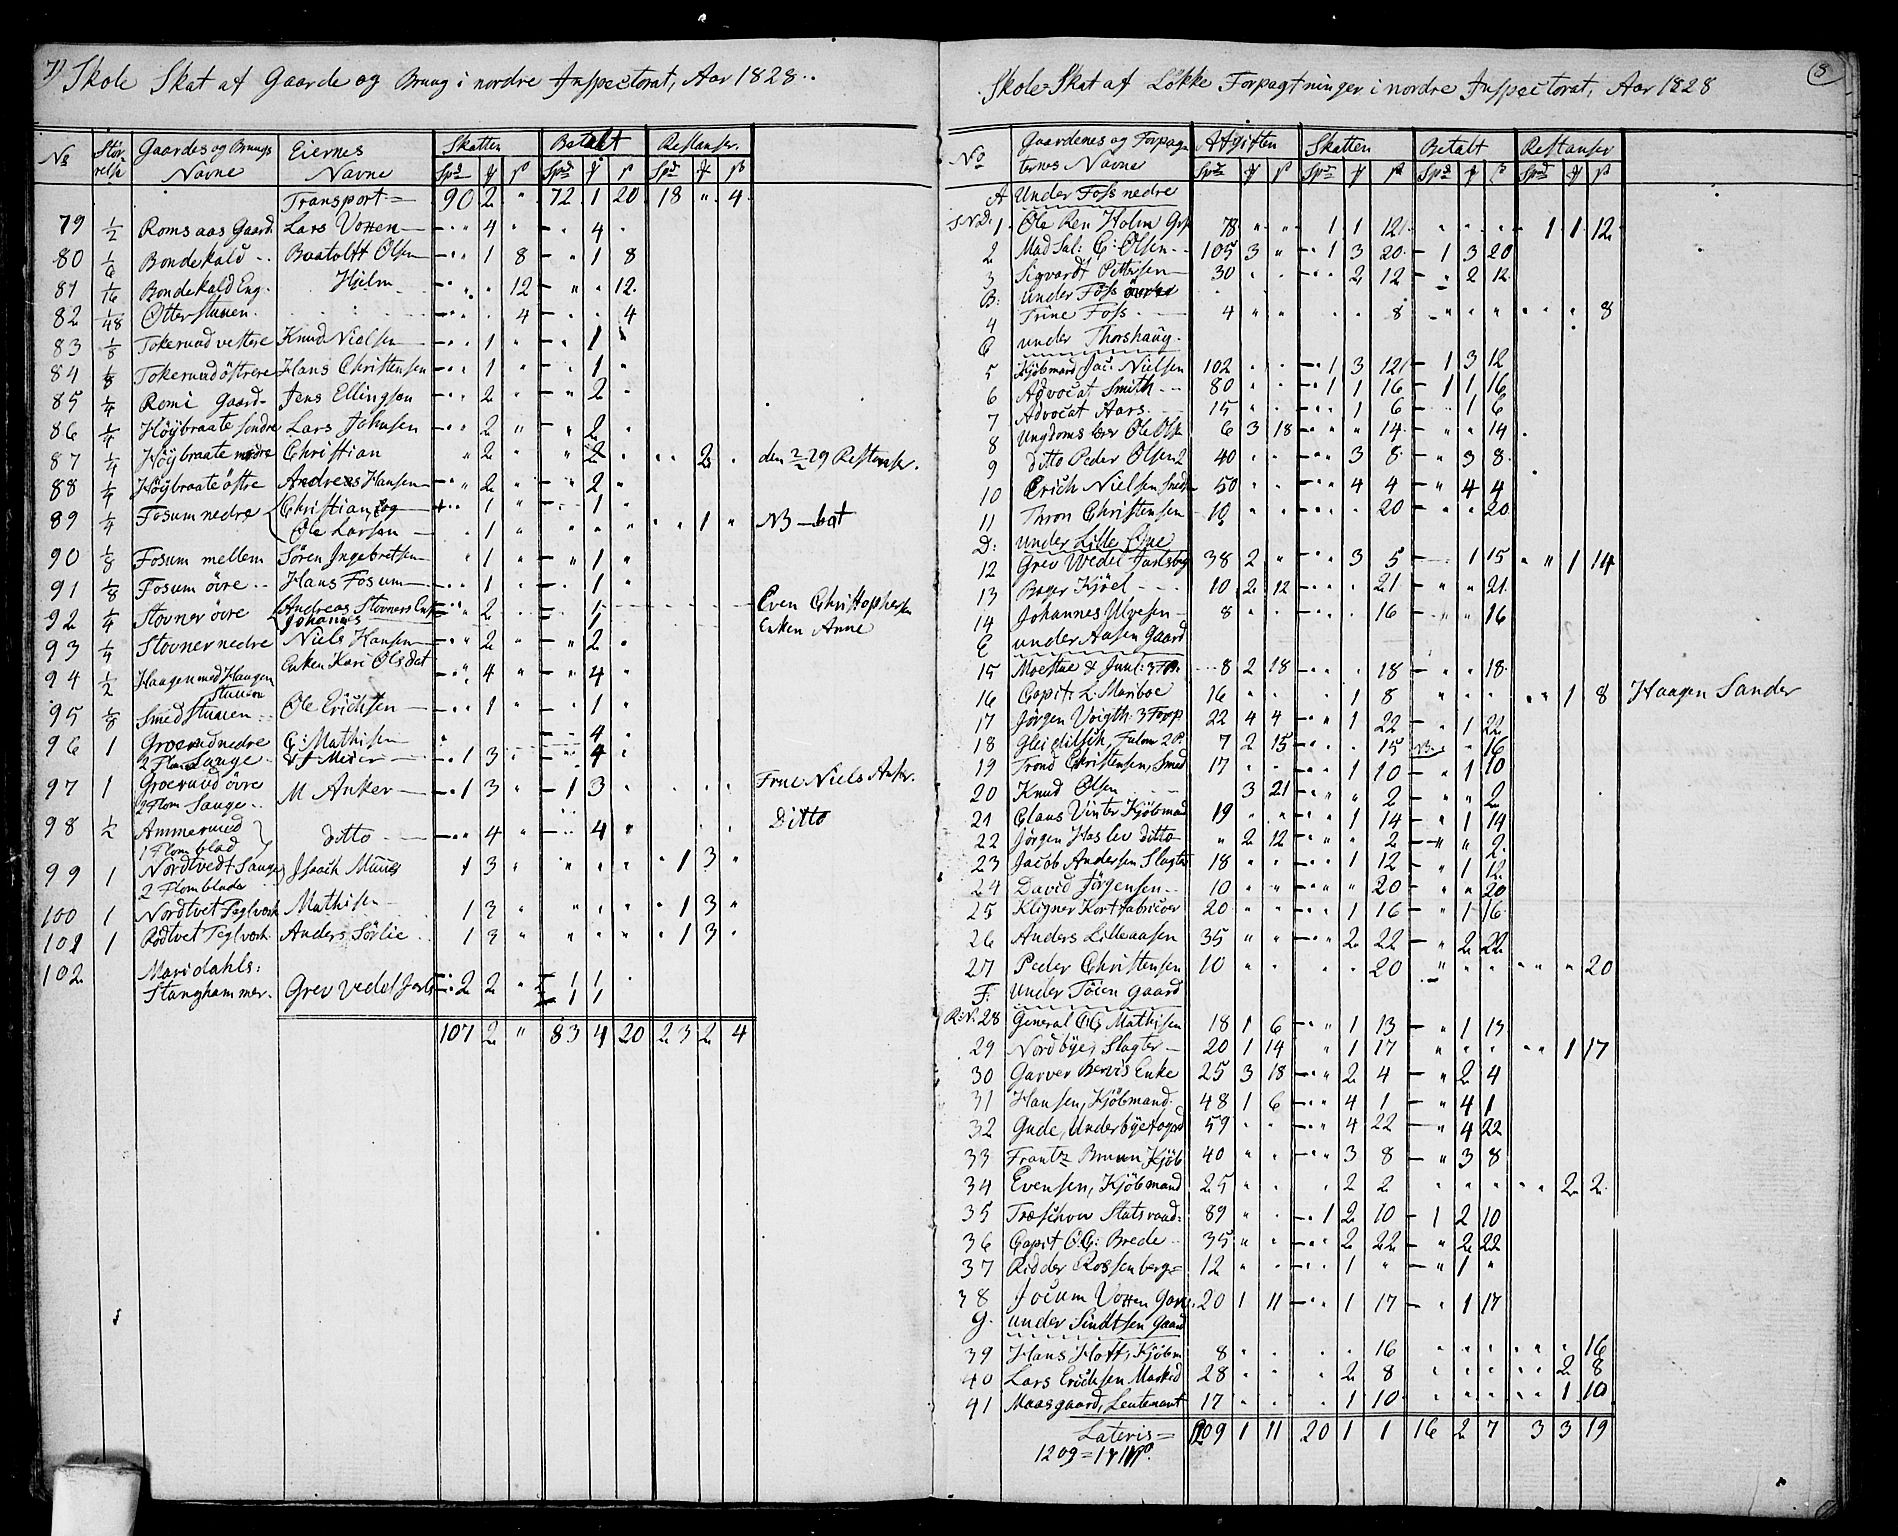 7) Skole Skat af Gaarde og Bruug i nordre Inspectorat, Aar 1828.
No Stör- relse Gaardes og Bruugs Navne Eiernes Navne Skatten Betalt Restanser.
Spd # ß Spd # ß Spd # ß
Transport = 90 2 " 72 1 20 18 " 4
79 1/2 Romsaas Gaard Lars Votten 4 4
80 1/6 Bondekald Baatoltt Olsen 1 8 1 8
81 1/16 Bondekald Eng. Hielm 12 12
82 1/48 Otterstuuen 4 4
83 1/8 Tokeruud vestere Knud Nielsen 1 1
84 1/8 Tokeruud östrere Hans Christensen 1 1
85 1/4 Romi Gaard Jens Ellingson 2 2
86 1/4 Höybraate söndre Lars Johnsen 2 " 2
87 1/4 Höybraate nedre Christian " 2 " " 2 2 den 2/2 29 Restanser.
88 1/4 Höybraate östre Andreas Hansen 2 " 2 "
89 1/4 Fosum nedre Christian og 1 " 1 "
Ole Larsen 1 " 1 " NB bet
90 1/8 Fosum mellem Sören Ingebretsen 1 " 1 "
91 1/8 Fosum övre Hans Fosum 1 1
92 1/4 Stovner övre Andreas Stovners Enke 2 1 Even Christophersen
Johannes Enken Anne
93 1/4 Stovner nedre Niels Hansen 2 2
94 1/2 Haagen med Haugen Stuuen Enken Kari Olsdat 4 4
95 1/8 Smedstuuen Ole Erichsen 1 1
96 1 Groerud nedre C: Mathisen 4
2 Flom Sauge Meier 1 3 4
97 1 Groeruud övre M Anker 1 3 1 3 Frue Niels Anker.
2 Flom Sauge
98 1/2 Ammerued ditto 4 4 Ditto
1 Flom blad
99 1 Nordtvedt Sauge Isaach Muus 1 3 1 3
2 Flomblader
100 1 Nordtvet Teglverk Mathisen 1 3 1 3
101 1 Rödtvet Teglverk Anders Sörlie 1 3 1 3
102 Maridahls:
Stanghammer. Grev Vedel Jarls 2 2 1 1
1 1
107 2 " 83 4 20 23 2 4
8
Skole-Skat af Lökke Forpagtninger i nordre Inspectorat, Aar 1828
No Gaardenes og Forpagternes Navne Afgiften Skatten Betalt Restanser
Spd # ß Spd # ß Spd # ß Spd # ß
A Under Foss nedre
1. Ole Ren Holm 78 " " 1 1 12 1 1 12
2 Mad Sal: C: Olsen 105 3 " 1 3 20 1 3 20
3 Sigvardt Pettersen 30 2 12 2 12
B: under Foss övre
4 Trine Foss 4 8 8
C under Thorshaug
5 Kjöbmand Jac: Nielsen 102 1 3 12 1 3 12
6 Advocat Smith 80 1 1 16 1 1 16
7 Advocat Aars 15 1 6 1 6
8 Ungdoms Ole Olsen 6 3 18 14 14
9 ditto Peder Olsen 40 3 8 3 8
10 Erich Nielsen Smed 50 4 4 4 4
11 Thron Christensen 10 20 20
D: under Lille Öne
12 Grev Wedel Jarlsbog 38 2 " 3 5 1 15 1 14
13 Bager Kjöel 10 2 12 21 21
14 Johannes Ilvesen 8 16 16
E under Aasen Gaard
15 Moestue & Juul: 3 Fp. 8 2 18 18 18
16 Capit: L: Mariboe 16 1 8 1 8 Haagen Sander
17 Jörgen Voigth: 3 Forp 22 4 4 1 22 1 22
18 Gleiditsch, Falom 2 P. 7 2 15 15 NB 16
19 Trond Christensen, Smed 17 1 10 1 10
20 Knud Olsen 3 21 2 2
21 Claus Vinter Kjöbmand 19 1 14 1 14
22 Jörgen Haslev ditto " 2 12 2 2
23 Jacob Andersen Slagter 18 1 12 1 12
24 David Jörgensen 10 20 20
25 Kligner Kortfabricör 20 1 16 1 16
26 Anders Lilleaasen 35 2 22 2 22
27 Peder Christensen 10 20 20
F: under Töien gaard
R: N: 28 General Mathisen 18 1 6 1 13 1 13
29 Nordbye, Slagter 20 1 14 1 17 1 17
30 Garver Bervis Enke 25 3 18 2 4 2 4
31 Hansen, Kjöbmand 48 1 6 4 1 4 1
32 Gude, Underbyefoged 59 4 22 4 22
33 Frantz Bruun Kjöb 40 3 8 3 8
34 Evensen, Kjöbmand 25 2 2 2 2
35 Treschow Statsraad 89 1 2 10 1 2 10
36 Capit C: Brede 35 2 22 2 22
37 Ridder Rossenberg 12 1 " 1 "
38 Jocum Votten Garv. 20 1 11 1 17 1 17
G. under Sindtsen Gaard
39 Hans Hoff, Kjöbm 8 16 16
40 Lars Erichsen Marked 28 2 8 2 8
41 Maasgaard, Leutenant 17 1 10 1 10
Lateris = 1209 1 11 20 1 1 16 2 7 3 3 19